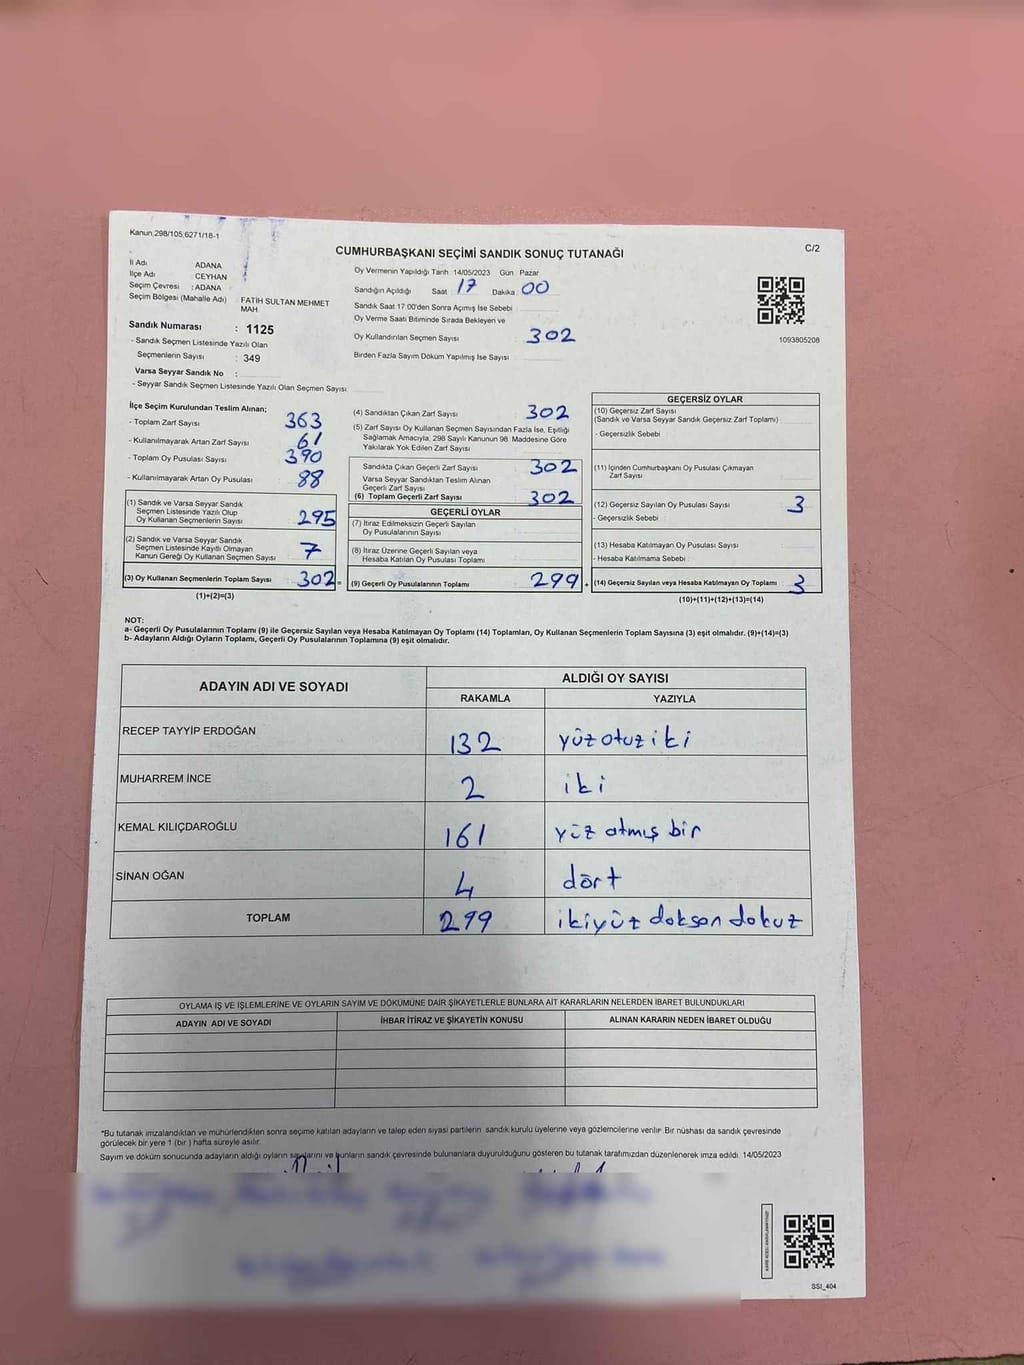 Kanun,298/105,6271/18-1
C/2
CUMHURBAŞKANI SEÇİMİ SANDIK SONUÇ TUTANAĞI
İl Adı ADANA
İlçe Adı CEYHAN
Seçim Çevresi : ADANA
Seçim Bölgesi (Mahalle Adı) FATİH SULTAN MEHMET MAH
Sandık Numarası : 1125
- Sandık Seçmen Listesinde Yazılı Olan
Seçmenlerin Sayısı : 349
Varsa Seyyar Sandık No :
- Seyyar Sandık Seçmen Listesinde Yazılı Olan Seçmen Sayısı:
Oy Vermenin Yapıldığı Tarih 14/05/2023 Gün : Pazar
Sandığın Açıldığı Saat 17 Dakika : 00
Sandık Saat 17 00'den Sonra Açımış İse Sebebi :
Oy Verme Saati Bitiminde Sırada Bekleyen ve
Oy Kullandırılan Seçmen Sayısı : 302
Birden Fazla Sayım Döküm Yapılmış İse Sayısı :
1093805208
İlçe Seçim Kurulundan Teslim Alınan;
- Toplam Zarf Sayısı 363
- Kullanılmayarak Artan Zarf Sayısı 61
- Toplam Oy Pusulası Sayısı 390
- Kullanılmayarak Artan Oy Pusulası 88
(1) Sandık ve Varsa Seyyar Sandık
Seçmen Listesinde Yazılı Olup
Oy Kullanan Seçmenlerin Sayısı 295
(2) Sandık ve Varsa Seyyar Sandık
Seçmen Listesinde Kayıtlı Olmayan
Kanun Gereği Oy Kullanan Seçmen Sayısı 7
(3) Oy Kullanan Seçmenlerin Toplam Sayısı 302 =
(1)+(2)=(3)
(4) Sandıktan Çıkan Zarf Sayısı 302
(5) Zarf Sayısı Oy Kullanan Seçmen Sayısından Fazla İse, Eşitliği
Sağlamak Amacıyla, 298 Sayılı Kanunun 98. Maddesine Göre
Yakılarak Yok Edilen Zarf Sayısı
Sandıkta Çıkan Geçerli Zarf Sayısı 302
Varsa Seyyar Sandıktan Teslim Alınan
Geçerli Zarf Sayısı
(6) Toplam Geçerli Zarf Sayısı 302
GEÇERLİ OYLAR
(7) İtiraz Edilmeksizin Geçerli Sayılan
Oy Pusulalarının Sayısı
(8) İtiraz Üzerine Geçerli Sayılan veya
Hesaba Katılan Oy Pusulası Toplamı
(9) Geçerli Oy Pusulalarının Toplamı 299 +
GEÇERSİZ OYLAR
(10) Geçersiz Zarf Sayısı
(Sandık ve Varsa Seyyar Sandık Geçersiz Zarf Toplamı) :
- Geçersizlik Sebebi
(11) İçinden Cumhurbaşkanı Oy Pusulası Çıkmayan
Zarf Sayısı
(12) Geçersiz Sayılan Oy Pusulası Sayısı 3
- Geçersizlik Sebebi
(13) Hesaba Katılmayan Oy Pusulası Sayısı
- Hesaba Katılmama Sebebi
(14) Geçersiz Sayılan veya Hesaba Katılmayan Oy Toplamı 3
(10)+(11)+(12)+(13)=(14)
NOT:
a- Geçerli Oy Pusulalarının Toplamı (9) ile Geçersiz Sayılan veya Hesaba Katılmayan Oy Toplamı (14) Toplamları, Oy Kullanan Seçmenlerin Toplam Sayısına (3) eşit olmalıdır. (9)+(14)=(3)
b- Adayların Aldığı Oyların Toplamı, Geçerli Oy Pusulalarının Toplamına (9) eşit olmalıdır.
ADAYIN ADI VE SOYADI ALDIĞI OY SAYISI
RAKAMLA YAZIYLA
RECEP TAYYİP ERDOĞAN 132 yüz otuz iki
MUHARREM İNCE 2 iki
KEMAL KILIÇDAROĞLU 161 yüz atmış bir
SİNAN OĞAN 4 dört
TOPLAM 299 ikiyüz doksan dokuz
OYLAMA İŞ VE İŞLEMLERİNE VE OYLARIN SAYIM VE DÖKÜMÜNE DAİR ŞİKAYETLERLE BUNLARA AİT KARARLARIN NELERDEN İBARET BULUNDUKLARI
ADAYIN ADI VE SOYADI İHBAR İTİRAZ VE ŞİKAYETİN KONUSU ALINAN KARARIN NEDEN İBARET OLDUĞU
*Bu tutanak imzalandıktan ve mühürlendikten sonra seçime katılan adayların ve talep eden siyasi partilerin sandık kurulu üyelerine veya gözlemcilerine verilir Bir nüshası da sandık çevresinde
görülecek bir yere 1 (bir ) hafta süreyle asılır.
Sayım ve döküm sonucunda adayların aldığı oyların sayılarını ve bunların sandık çevresinde bulunanlara duyurulduğunu gösteren bu tutanak tarafımızdan düzenlenerek imza edildi. 14/05/2023
SSI_404